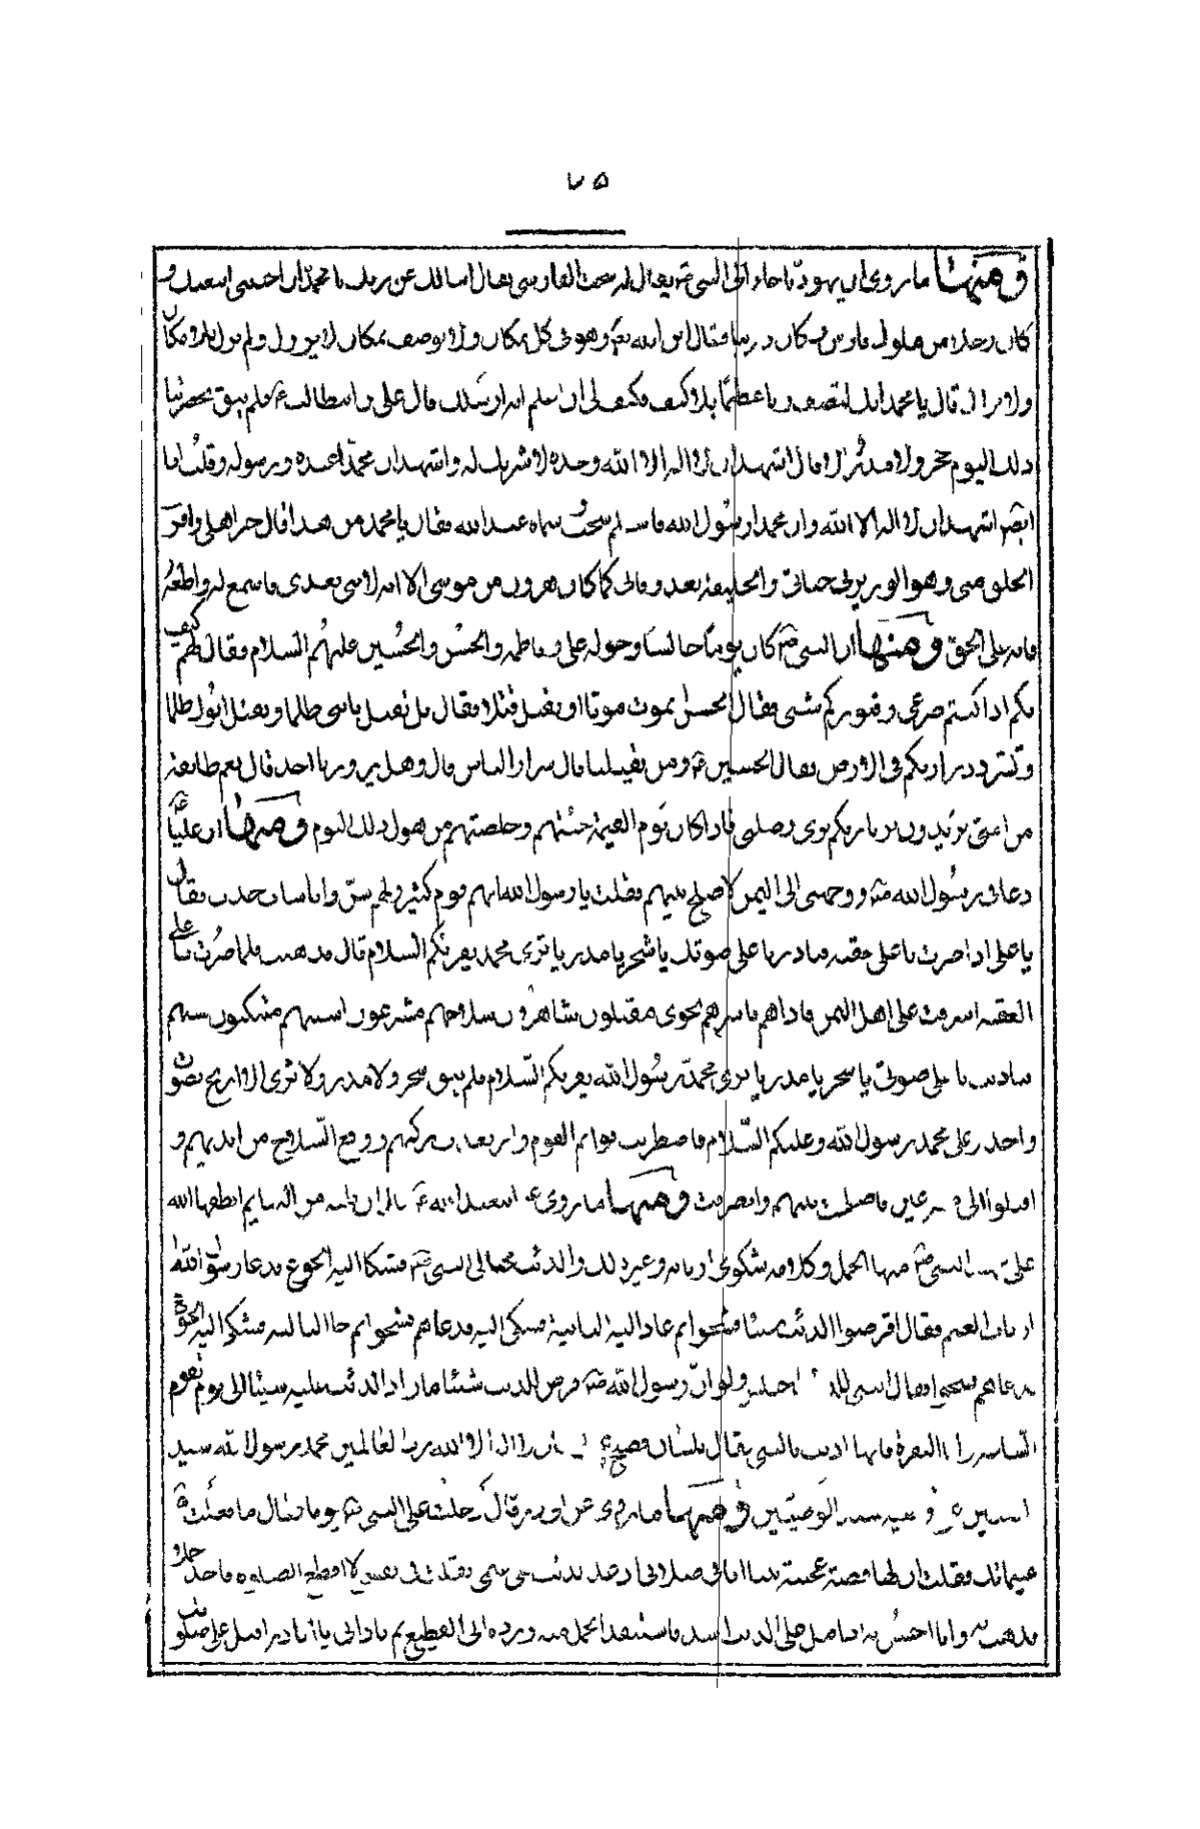 ٧٥
ومنها ما روى ان يهوديا جاء الى النبي ص يقال له سحت الفارسي فقال اسالك عن ربك يا محمد ان اجبتني اتبعتك و
كان رجلا من ملوك فارس وكان دربا فقال اين الله قال هو في كل مكان ولا يوصف بمكان ولا يزول ولم يزل بلا مكان
ولا يزال قال يا محمد انك لتصف ربا عظيما بلا كيف فكيف لي ان اعلم انه ارسلك قال علي بن ابيطالب ع فلم يبق بحضرتنا
ذلك اليوم حجر ولا مدر الا قال اشهد ان لا اله الا الله وحده لا شريك له واشهد ان محمدا عبده ورسوله وقلت انا
ايضا اشهد ان لا اله الا الله وان محمدا رسول الله فاسلم سحت سماه عبد الله فقال يا محمد من هذا قال خير اهلي واقرب
الخلق مني وهو الوزير في حياتي والخليفة بعد وفاتي كما كان هرون من موسى الا انه لا نبي بعدي فاسمع له واطعه
فانه على الحق ومنها ان النبي ص كان يوما جالسا وحوله علي وفاطمة والحسن والحسين عليهم السلام فقال لهم كيف
بكم اذا كنتم صرعى وقبوركم شتى فقال الحسن نموت موتا او نقتل قتلا فقال بل تقتل يا بني ظلما ويقتل ابوك ظلما
وتشرد ذراريكم في الارض فقال الحسين ع ومن يقتلنا قال شرار الناس قال وهل يزورنا احد قال نعم طايفة
من امتي يريدون بزيارتكم بري وصلتي فاذا كان يوم القيمة جئتهم وخلصتهم من هول ذلك اليوم ومنها ان عليا ع
دعاني رسول الله ص ووجهني الى اليمن لاصلح بينهم فقلت يا رسول الله انهم قوم كثير ولهم سن وانا شاب حدث فقال
يا علي اذا صرت باعلى عقبة فناد باعلى صوتك يا شجر يا مدر يا ثرى محمد يقرئكم السلام قال فذهبت فلما صرت باعلى
العقبة اشرفت على اهل اليمن فاذا هم باسرهم نحوي مقبلون شاهرون سلاحهم مشرعون اسنتهم متنكبون قسيهم
فناديت باعلى صوتي يا شجر يا مدر يا ثرى محمد رسول الله يقرئكم السلام فلم يبق شجر ولا مدر ولا ثرى الا ارتج بصوت
واحد وعلى محمد رسول الله وعليكم السلام فاضطربت قوائم القوم وارتعدت ركبهم ووقع السلاح من ايديهم و
اقبلوا الي مسرعين فاصلحت بينهم وانصرفت ومنها ما روى عن ابي عبد الله ع قال ان ثلثة من البهايم انطقها الله
على عهد النبي ص منها الجمل وكلامه شكوى اربابه وغير ذلك والذئب فجاء الى النبي ص فشكا اليه الجوع فدعا رسول الله
ارباب الغنم فقال افرضوا للذئب شيئا فشحوا ثم عاد اليه الثانية فشكى اليه فدعاهم فشحوا ثم جاء الثالثة فشكا اليه الجوع
فدعاهم فشحوا فقال النبي للذئب اختلس ولو ان رسول الله ص فرض للذئب شيئا ما زاد الذئب عليه شيئا الى يوم تقوم
الساعة واما البقرة فانها اذنت بالنبي فقال بلسان فصيح لا اله الا الله رب العالمين محمد رسول الله سيد
النبيين وعلي وصيه سيد الوصيين ومنها ما روى عن ابي ذر قال دخلت على النبي ص يوما فقال ما فعلت
غنيماتك فقلت ان لها قصة عجيبة بينا انا في صلاتي اذ عدا ذئب على غنمي فقلت في نفسي لا اقطع الصلوة فاخذ حملا
فذهب به وانا احس به اذ اقبل على الذئب اسد فاستنقذ الحمل منه ورده الى القطيع ثم نادى يا ابا ذر اقبل على صلوتك